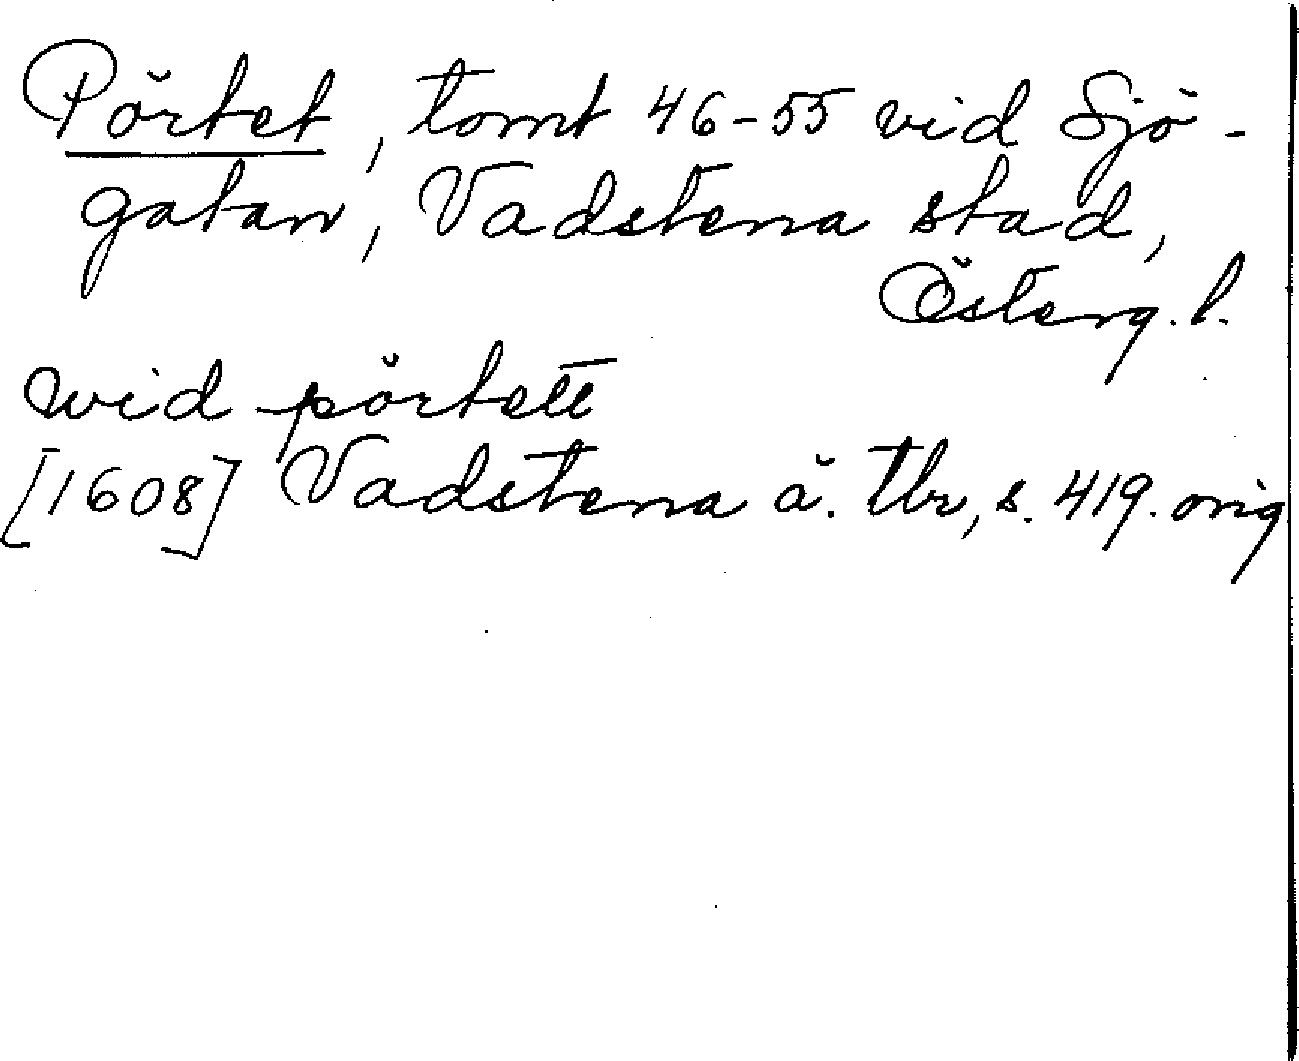 Pörtet, tomt 46-55 vid Sjö-
gatan, Vadstena stad,
Österg. l.
wid pörtett
[1608] Vadstena ä. tbr, s. 419. orig